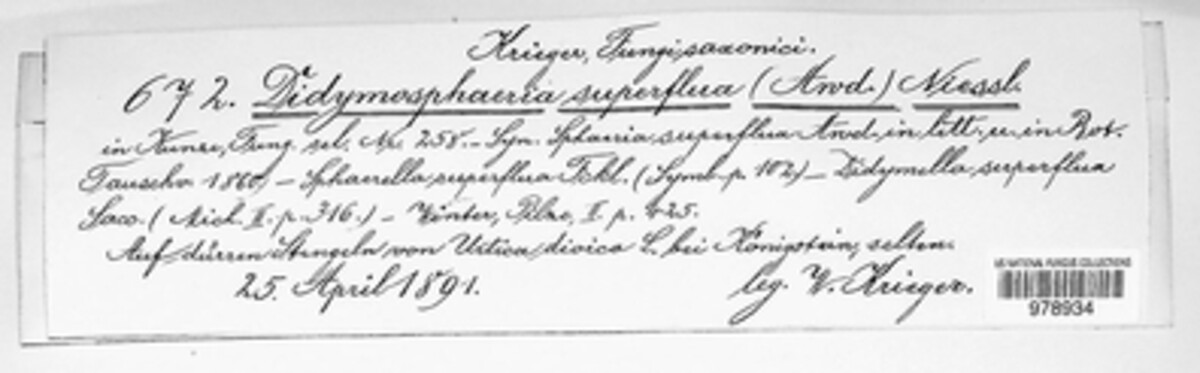 Krieger, Fungi saxonici.
672. Didymosphaeria superflua (Awd.) Niessl.
in Kunze, Fung. sel. Nr. 258. – Syn. Sphaeria superflua Awd. in litt. u. in Bot.
Tauschv. 1860, – Sphaerella superflua Fckl. (Symb. p. 102) – Didymella superflua
Sacc. (Mich. II. p. 316.) – Winter, Pilze, II. p. 425.
Auf dürren Stengeln von Urtica dioica L. bei Königstein, selten.
25. April 1891. leg. W. Krieger.
US NATIONAL FUNGUS COLLECTIONS
978934